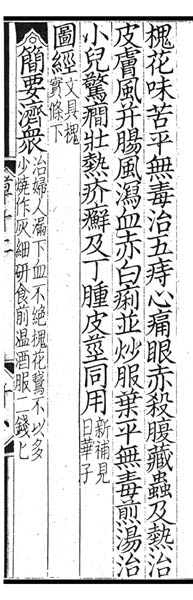 槐花味苦平無毒治五痔心痛眼赤殺腹藏蟲及熱治
皮膚風并腸風瀉血赤白痢並炒服葉平無毒煎湯治
小兒驚癇壯熱疥癬及丁腫皮莖同用新補見日華子
圖經文具槐實條下
簡要濟衆治婦人漏下血不絶槐花鵞不以多少燒作灰細研食前温酒服二錢匕